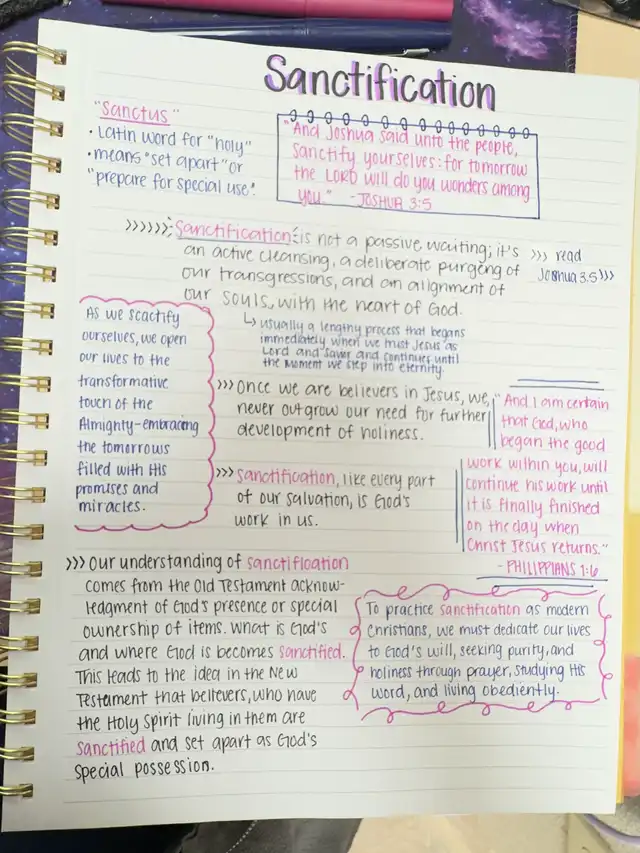 Sanctification
"Sanctus"
• Latin word for "holy"
• means "set apart" or
"prepare for special use".
"And Joshua said unto the people,
sanctify yourselves: for tomorrow
the LORD will do you wonders among
you." - JOSHUA 3:5
>>>>>> Sanctification is not a passive waiting; it's
an active cleansing, a deliberate purging of
our transgressions, and an alignment of
our souls, with the heart of God.
>>> read
Joshua 3:5 >>>
↳ usually a lengthy process that begans
immediately when we trust Jesus as
Lord and Saver and continues until
the moment we step into eternity.
As we scactify
ourselves, we open
our lives to the
transformative
touch of the
Almighty-embracing
the tomorrows
filled with His
promises and
miracles.
>>> Once we are believers in Jesus, we
never outgrow our need for further
development of holiness.
>>> Sanctification, like every part
of our salvation, is God's
work in us.
"And I am certain
that God, who
began the good
work within you, will
continue his work until
it is finally finished
on the day when
Christ Jesus returns."
- PHILIPPIANS 1:6
>>> Our understanding of sanctification
comes from the Old Testament acknow-
ledgment of God's presence or special
ownership of items. What is God's
and where God is becomes sanctified.
This leads to the idea in the New
Testament that believers, who have
the Holy Spirit living in them are
sanctified and set apart as God's
special possession.
To practice sanctification as modern
Christians, we must dedicate our lives
to God's will, seeking purity, and
holiness through prayer, studying His
word, and living obediently.